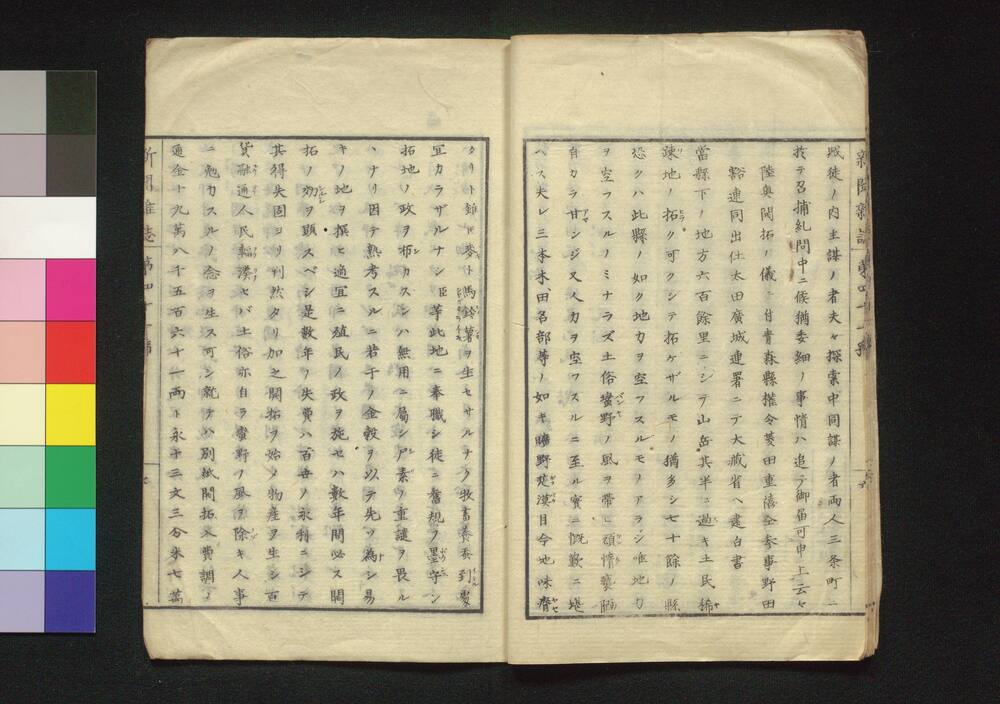 新聞雜誌 第四十一號
賊徒ノ内主謀ノ者夫々探索中同謀ノ者両人三条町ニ
於テ召捕糺問中ニ候猶委細ノ事情ハ追テ御届可申上云々
陸奥開拓ノ儀ニ付青森縣權令菱田重禧全参事野田
豁通同出仕太田廣城連署ニテ大藏省ヘ建白書
當縣下ノ地方六百餘里ニシテ山岳其半ニ過キ土民稀
疎地ノ拓ク可クシテ拓ケザルモノ猶多シ七十餘ノ縣
恐クハ此縣ノ如ク地力ヲ空フスルモノアラシ唯地力
ヲ空フスルノミナラズ土俗蠻野ノ風ヲ帶ヒ頑惰褻陋
自カラ甘ンジ又人力ヲ空フスルニ至ル實ニ慨歎ニ堪
ヘス夫レ三本木田名部等ノ如キ曠野茫漠目今地味瘠
タリト雖𪜈麥ト馬鈴薯ヲ生セサルナク牧畜養蚕到ル處
宜カラザルナシ臣等此地ニ奉職シ徒ニ舊規ヲ墨守シ
拓地ノ政ヲ布カスンハ無用ニ属シ素ノ重譴ヲ畏ル
ハナリ因テ熟考スルニ若干ノ金穀ヲ以テ先ツ為シ易
キノ地ヲ撰ヒ適宜ニ殖民ノ政ヲ施セハ數年間必ス開
拓ノ功ヲ顕スベシ是數年ノ失費ハ百世ノ永利ニシテ
其得失固ヨリ判然タリ加之開拓ヲ始メ物産ヲ生シ百
貨融通人民輻湊セバ土俗亦自ラ蠻野ノ風ヲ除キ人事
ニ勉力スルノ念ヲ生ス可シ就テハ別紙開拓入費調ノ
通金十九萬八千五百六十一両ト永十三文三分米七萬
新聞雜誌 第四十一號